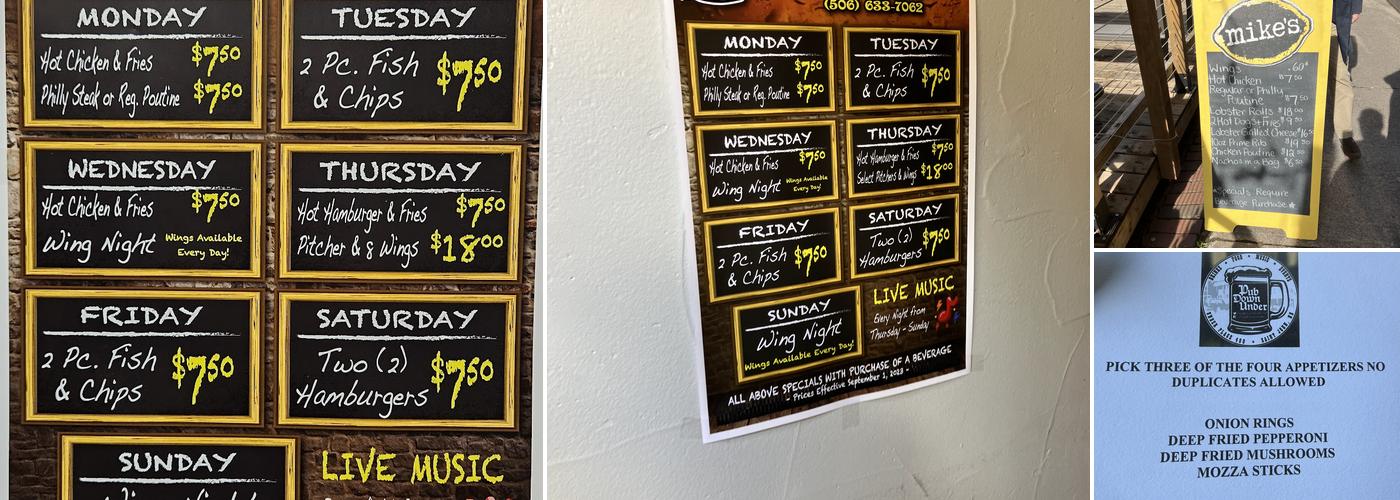 MONDAY
Hot Chicken & Fries $7.50
Philly Steak or Reg. Poutine $7.50
TUESDAY
2 Pc. Fish
& Chips $7.50
WEDNESDAY
Hot Chicken & Fries $7.50
Wing Night Wings Available
Every Day!
THURSDAY
Hot Hamburger & Fries $7.50
Pitcher & 8 Wings $18.00
FRIDAY
2 Pc. Fish
& Chips $7.50
SATURDAY
Two (2)
Hamburgers $7.50
SUNDAY
LIVE MUSIC
(506) 633-7062
MONDAY
Hot Chicken & Fries $7.50
Philly Steak or Reg. Poutine $7.50
TUESDAY
2 Pc. Fish
& Chips $7.50
WEDNESDAY
Hot Chicken & Fries $7.50
Wing Night Wings Available
Every Day!
THURSDAY
Hot Hamburger & Fries $7.50
Select Pitchers & Wings $18.00
FRIDAY
2 Pc. Fish
& Chips $7.50
SATURDAY
Two (2)
Hamburgers $7.50
SUNDAY
Wing Night
Wings Available Every Day!
LIVE MUSIC
Every Night from
Thursday - Sunday
ALL ABOVE SPECIALS WITH PURCHASE OF A BEVERAGE
- Prices Effective September 1, 2023 -
mike's
Wings .60¢
Hot Chicken $7.50
Regular or Philly
Poutine $7.50
Lobster Rolls $18.00
2 Hot Dogs + Fries
Lobster Grilled Cheese
10oz Prime Rib
Chicken Poutine
Nachos in a Bag
*Specials Require
Beverage Purchase*
Pub
Down
Under
PICK THREE OF THE FOUR APPETIZERS NO
DUPLICATES ALLOWED
ONION RINGS
DEEP FRIED PEPPERONI
DEEP FRIED MUSHROOMS
MOZZA STICKS